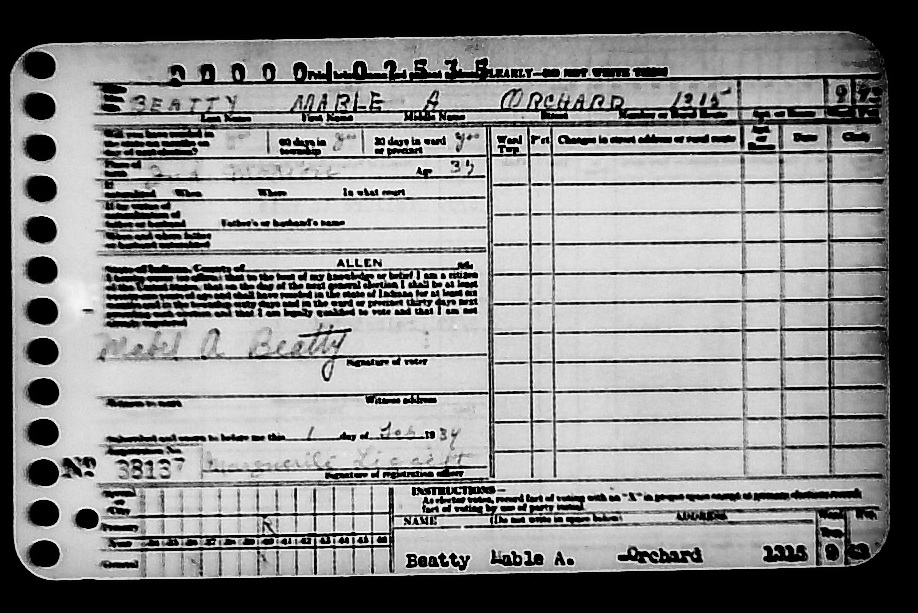 0 0 0 0 0 1 0 2 5 3 5 CLEARLY—DO NOT WRITE
BEATTY MABLE A ORCHARD 1315 9
Last Name First Name Middle Name Street Number or Rural Route Apt. or Room
Will you have resided in the state six months 60 days in township yes 30 days in ward or precinct yes Ward Twp. Pct Changes in street address or rural route Apt. or Room Date Clerk
Place of birth Age
If naturalized When Where In what court
If by virtue of naturalization of father or husband Father's or husband's name
When and where father or husband naturalized
State of Indiana, County of ALLEN ss.
I being sworn on oath that to the best of my knowledge or belief I am a citizen
of the United States, that on the day of the next general election I shall be at least
twenty-one years of age and shall have resided in the state of Indiana for at least six
months and in the township sixty days and in the ward or precinct thirty days next
preceding such election and that I am legally qualified to vote and that I am not
already registered
Mabel A Beatty
Signature of voter
Witness to mark Witness address
Subscribed and sworn to before me this 1 day of Feb 1934
Registration No.
No 38137 Marguerite
Signature of registration officer
INSTRUCTIONS—
As elector votes, record fact of voting with an "X" in proper space except at primary elections record
fact of voting by use of party initial.
City
Primary
NAME (Do not write in space below) ADDRESS Ward Pct.
Year
General
Beatty Mable A. Orchard 1315 9